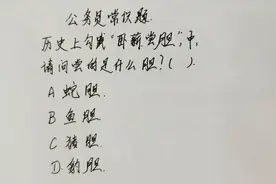 公务员常识题.
历史上勾践"卧薪尝胆",中,
请问尝的是什么胆?( ).
A 蛇胆.
B 鱼胆
C 猪胆.
D.豹胆.